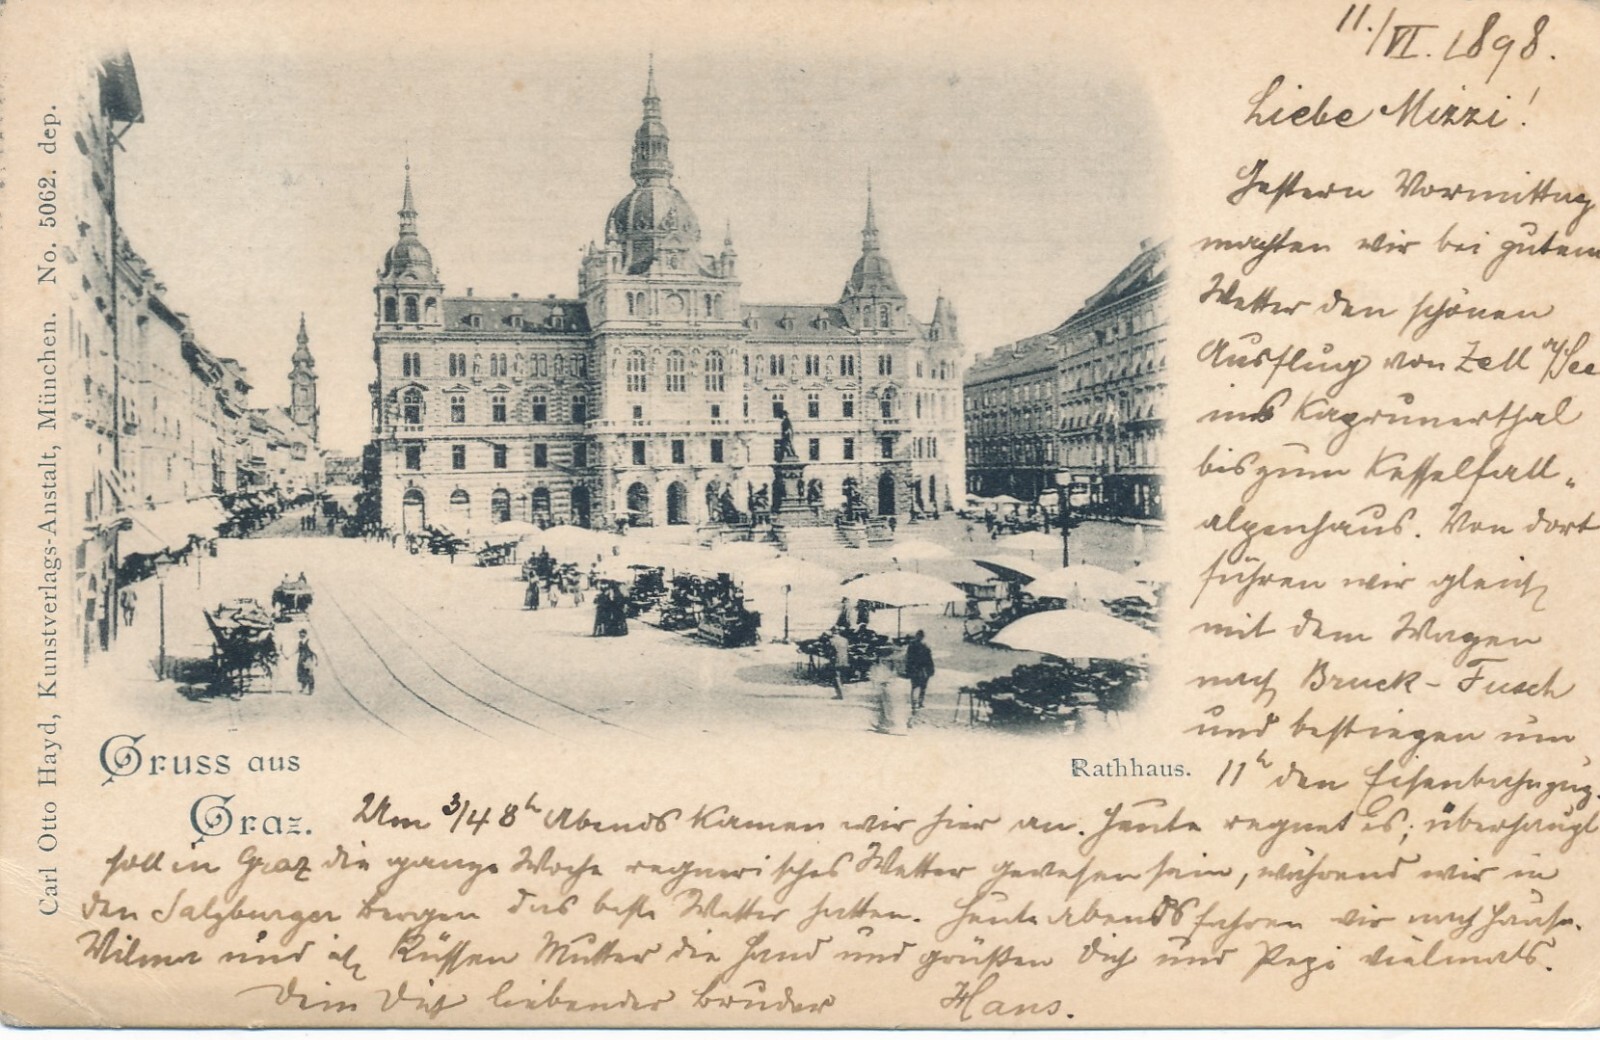 Carl Otto Hayd, Kunstverlags-Anstalt, München. No. 5062. dep.
11./VI. 1898.
Liebe Mizzi!
Gestern Vormittag
machten wir bei gutem
Wetter den schönen
Ausflug von Zell a/See
ins Kaprunerthal
bis zum Kesselfall-
alpenhaus. Von dort
fuhren wir gleich
mit dem Wagen
nach Bruck-Fusch
und bestiegen um
11h den Eisenbahnzug.
Gruss aus
Graz.
Rathhaus.
Um 3/4 8h Abends kamen wir hier an. Heute regnet es; überhaupt
soll in Graz die ganze Woche regnerisches Wetter gewesen sein, während wir in
den Salzburger Bergen das beste Wetter hatten. Heute Abends fahren wir nach Hause.
Wilma und ich küssen Mutter die Hand und grüßen Dich und Pepi vielmals.
Dein Dich liebender Bruder Hans.